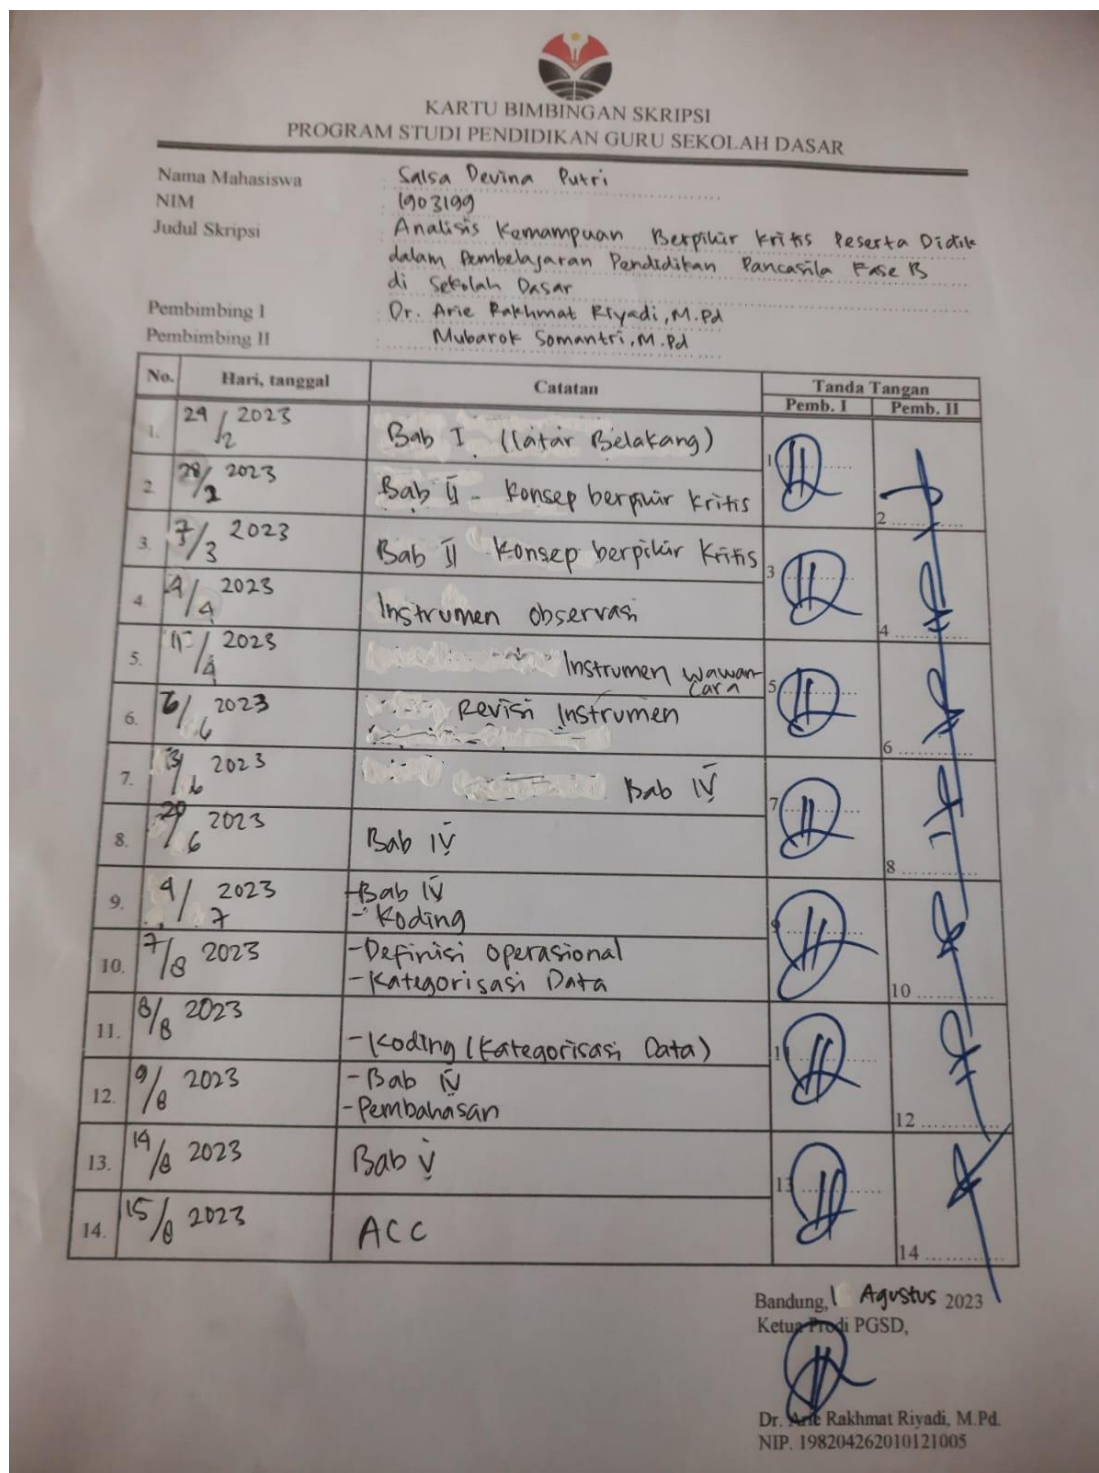 KARTU BIMBINGAN SKRIPSI
PROGRAM STUDI PENDIDIKAN GURU SEKOLAH DASAR
Nama Mahasiswa : Salsa Devina Putri
NIM : 1903199
Judul Skripsi : Analisis Kemampuan Berpikir Kritis Peserta Didik
dalam Pembelajaran Pendidikan Pancasila Fase B
di Sekolah Dasar
Pembimbing I : Dr. Arie Rakhmat Riyadi, M.Pd
Pembimbing II : Mubarok Somantri, M.Pd
No. Hari, tanggal Catatan Tanda Tangan
Pemb. I Pemb. II
1. /2 2023 Bab I (latar Belakang) 1
2. 28/2 2023 Bab II - Konsep berpikir kritis 2
3. 7/3 2023 Bab II Konsep berpikir kritis 3
4. 4/4 2023 Instrumen observasi 4
5. 11/4 2023 Instrumen wawan-
cara 5
6. 6/6 2023 Revisi Instrumen 6
7. 13/6 2023 Bab IV 7
8. 20/6 2023 Bab IV 8
9. 4/7 2023 - Bab IV
- Koding 9
10. 7/8 2023 - Definisi operasional
- Kategorisasi Data 10
11. 8/8 2023 - Koding (Kategorisasi Data) 11
12. 9/8 2023 - Bab IV
- Pembahasan 12
13. 14/8 2023 Bab V 13
14. 15/8 2023 ACC 14
Bandung, 1 Agustus 2023
Ketua Prodi PGSD,
Dr. Arie Rakhmat Riyadi, M.Pd.
NIP. 198204262010121005